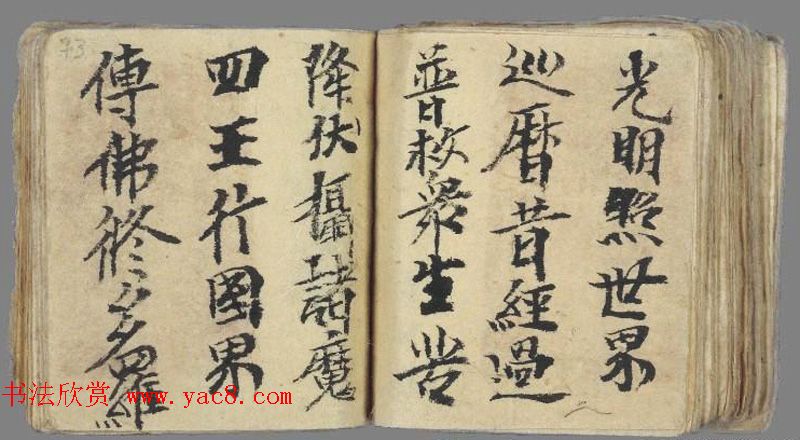 光明照世界
巡曆昔經過
普救衆生苦
降伏攝諸魔
四王行國界
傳佛修多羅
73
书法欣赏 www.yac8.com